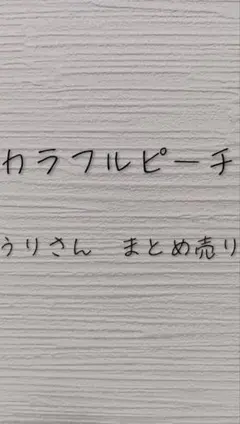 カラフルピーチ
うりさん　まとめ売り